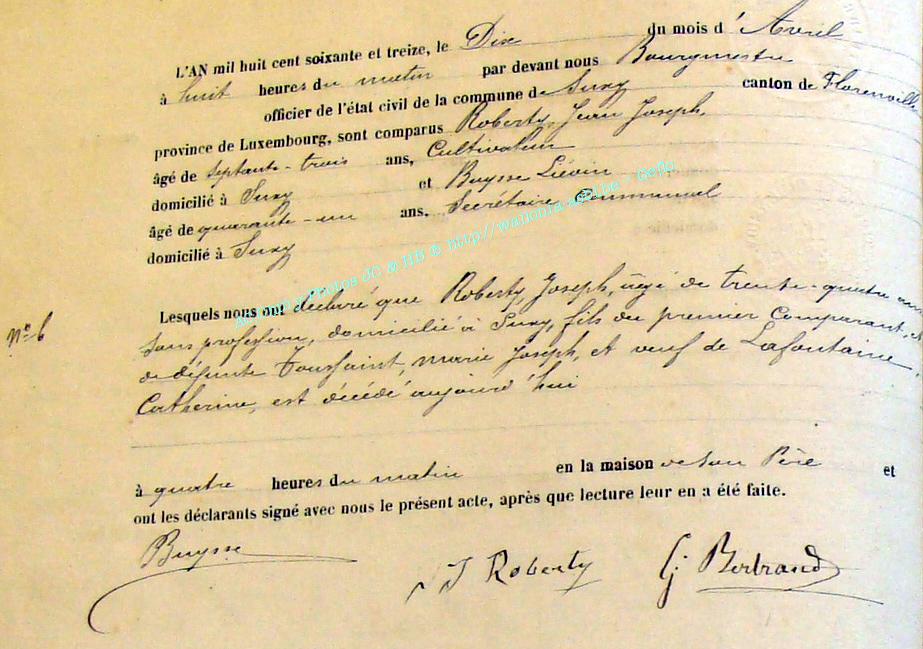 L'AN mil huit cent soixante et treize, le Dix du mois d'Avril
à huit heures du matin par devant nous Bourgmestre
officier de l'état civil de la commune de Suxy canton de Florenville
province de Luxembourg, sont comparus Roberty, Jean Joseph,
âgé de septante-trois ans, Cultivateur
domicilié à Suxy et Buysse Liévin
âgé de quarante-un ans. Secrétaire Communal
domicilié à Suxy
N° 6
Lesquels nous ont déclaré que Roberty, Joseph, âgé de trente-quatre ans
sans profession, domicilié à Suxy, fils du premier Comparant, et
de défunte Toussaint, Marie Joseph, et veuf de Lafontaine
Catherine, est décédé aujourd'hui
à quatre heures du matin en la maison de son Père et
ont les déclarants signé avec nous le présent acte, après que lecture leur en a été faite.
Buysse J Roberty G Bertrand
Photos JC & HB ® http://wallonia-asbl.be - Geneo